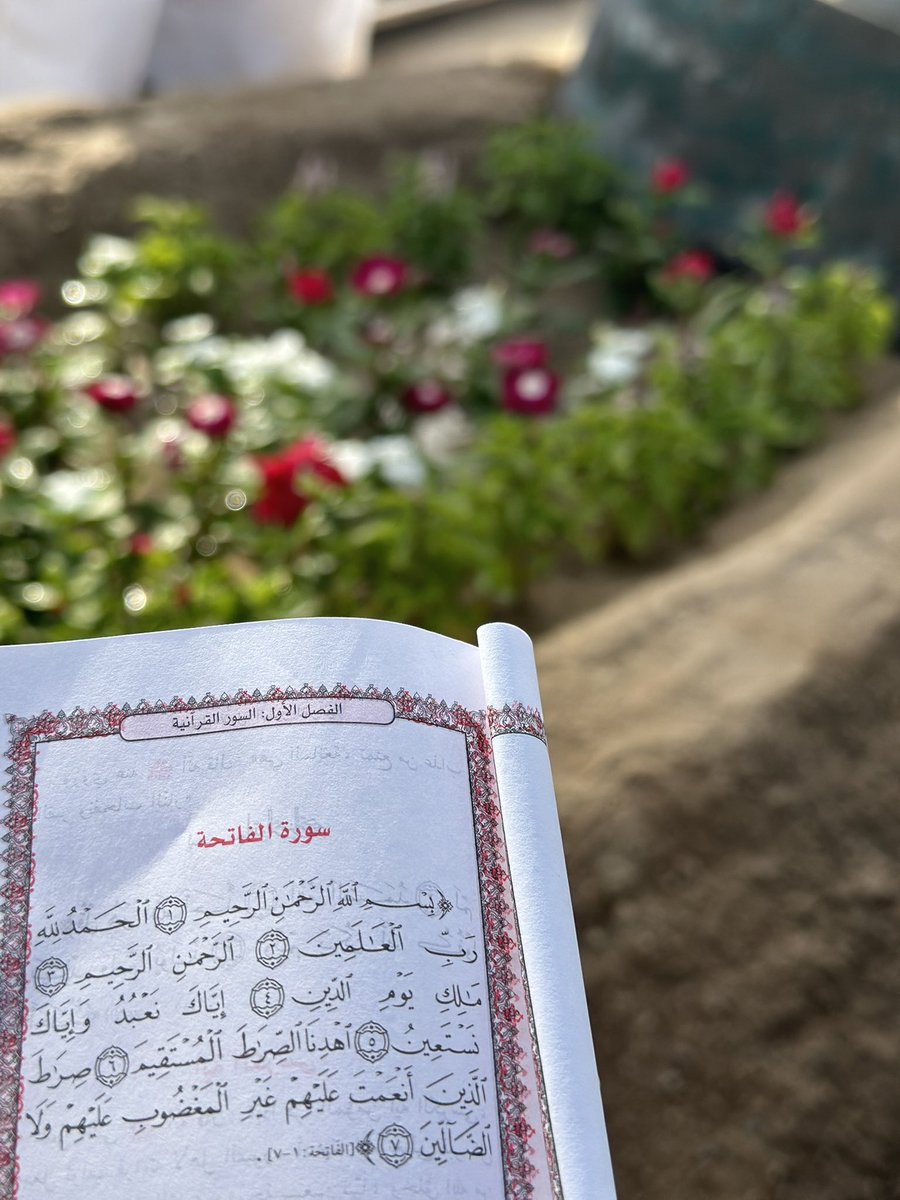 الفصل الأول: السور القرآنية
سورة الفاتحة
﴿بِسْمِ ٱللَّهِ ٱلرَّحْمَٰنِ ٱلرَّحِيمِ ۝١ ٱلْحَمْدُ لِلَّهِ
رَبِّ ٱلْعَٰلَمِينَ ۝٢ ٱلرَّحْمَٰنِ ٱلرَّحِيمِ ۝٣
مَٰلِكِ يَوْمِ ٱلدِّينِ ۝٤ إِيَّاكَ نَعْبُدُ وَإِيَّاكَ
نَسْتَعِينُ ۝٥ ٱهْدِنَا ٱلصِّرَٰطَ ٱلْمُسْتَقِيمَ ۝٦ صِرَٰطَ
ٱلَّذِينَ أَنْعَمْتَ عَلَيْهِمْ غَيْرِ ٱلْمَغْضُوبِ عَلَيْهِمْ وَلَا
ٱلضَّآلِّينَ ۝٧﴾ [الفاتحة: ١-٧].